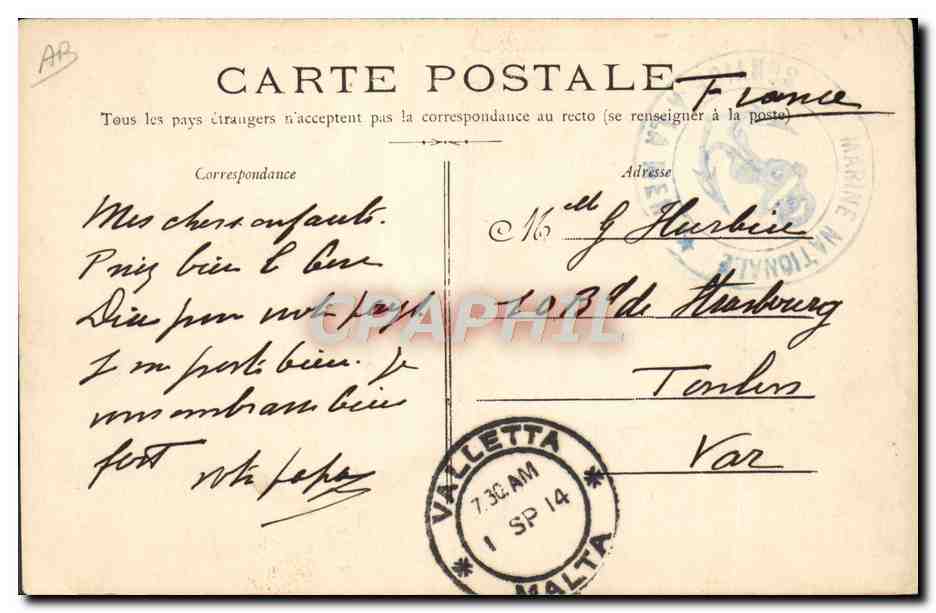 AB
CARTE POSTALE
France
Tous les pays étrangers n'acceptent pas la correspondance au recto (se renseigner à la poste)
MARINE NATIONALE
SERVICE À LA MER
Correspondance
Mes chers enfants.
Priez bien le bon
Dieu pour notre pays.
Je me porte bien. Je
vous embrasse bien
fort
votre papa
Adresse
Mell G
10 Bd de Strasbourg
Toulon
Var
CPAPHIL
VALLETTA
7.30.AM
1 SP 14
MALTA